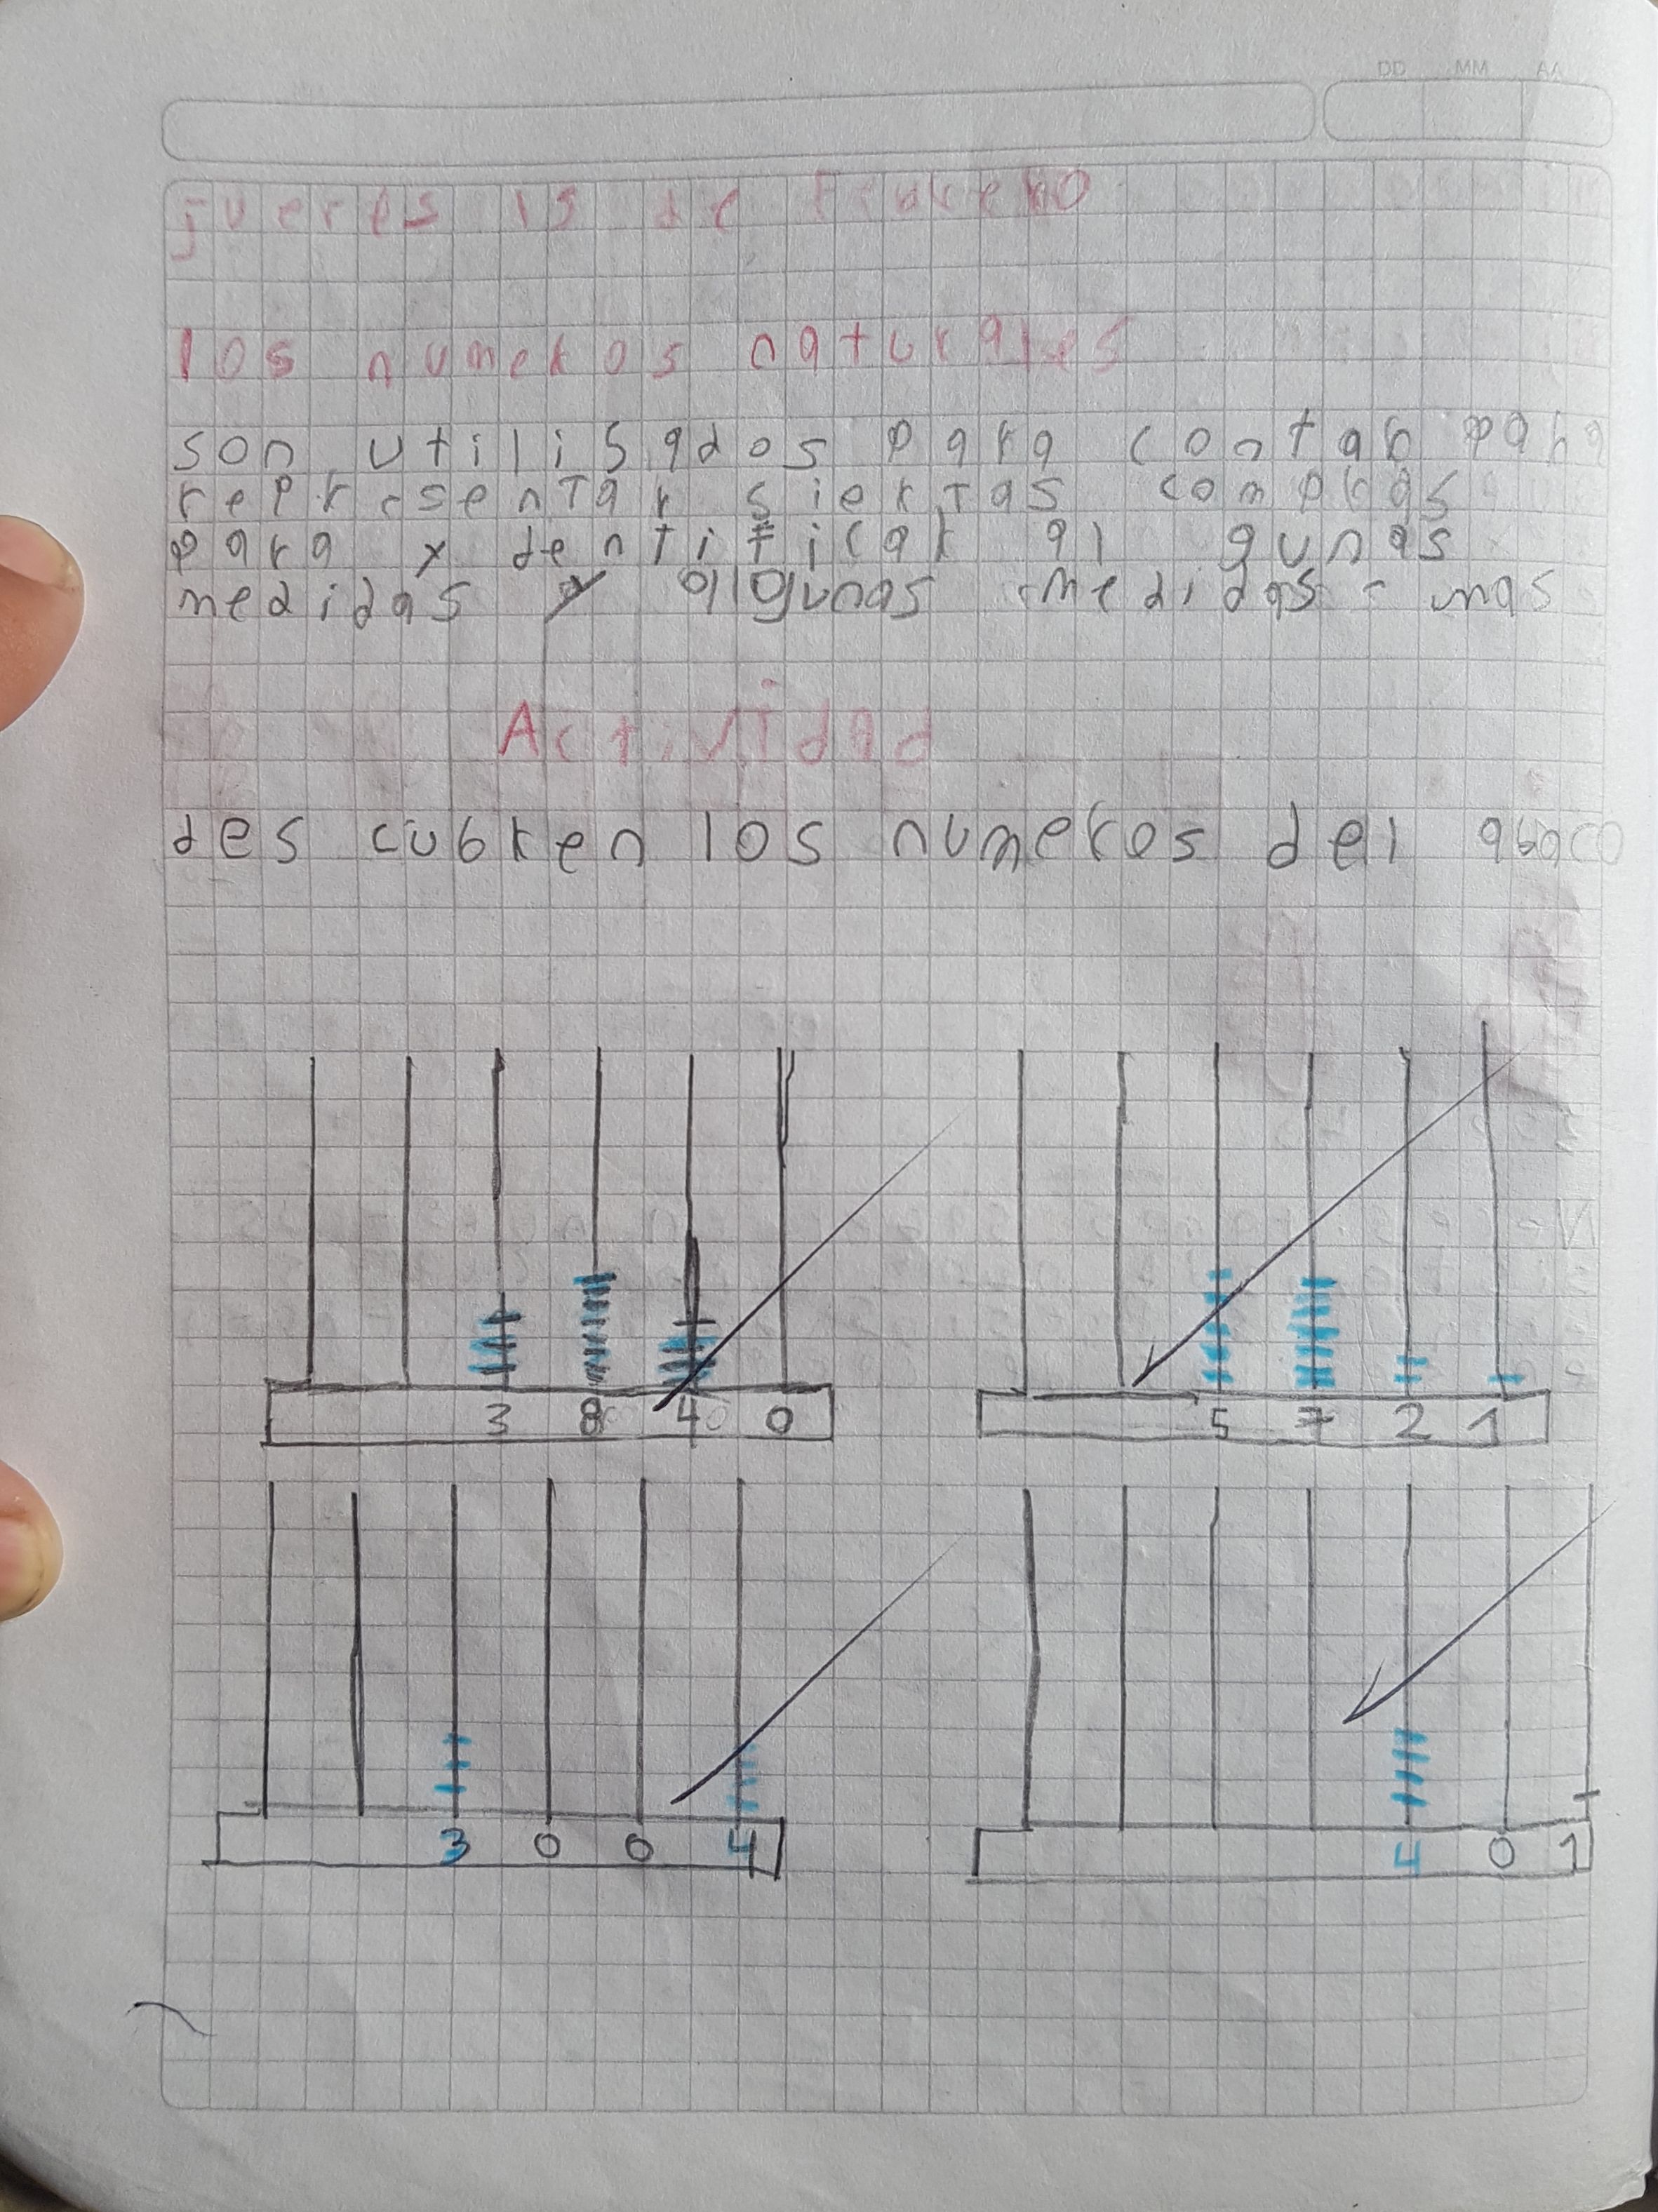 DD MM AA
jueres 19 de Febrero
los numeros naturales
son utilisados para contar para
representar siertas compras
para y dentificar al gunas
medidas y algunas medidas - unas
Actividad
des cubren los numeros del abaco
3 8 4 0
5 7 2 1
3 0 0 4
4 0 1